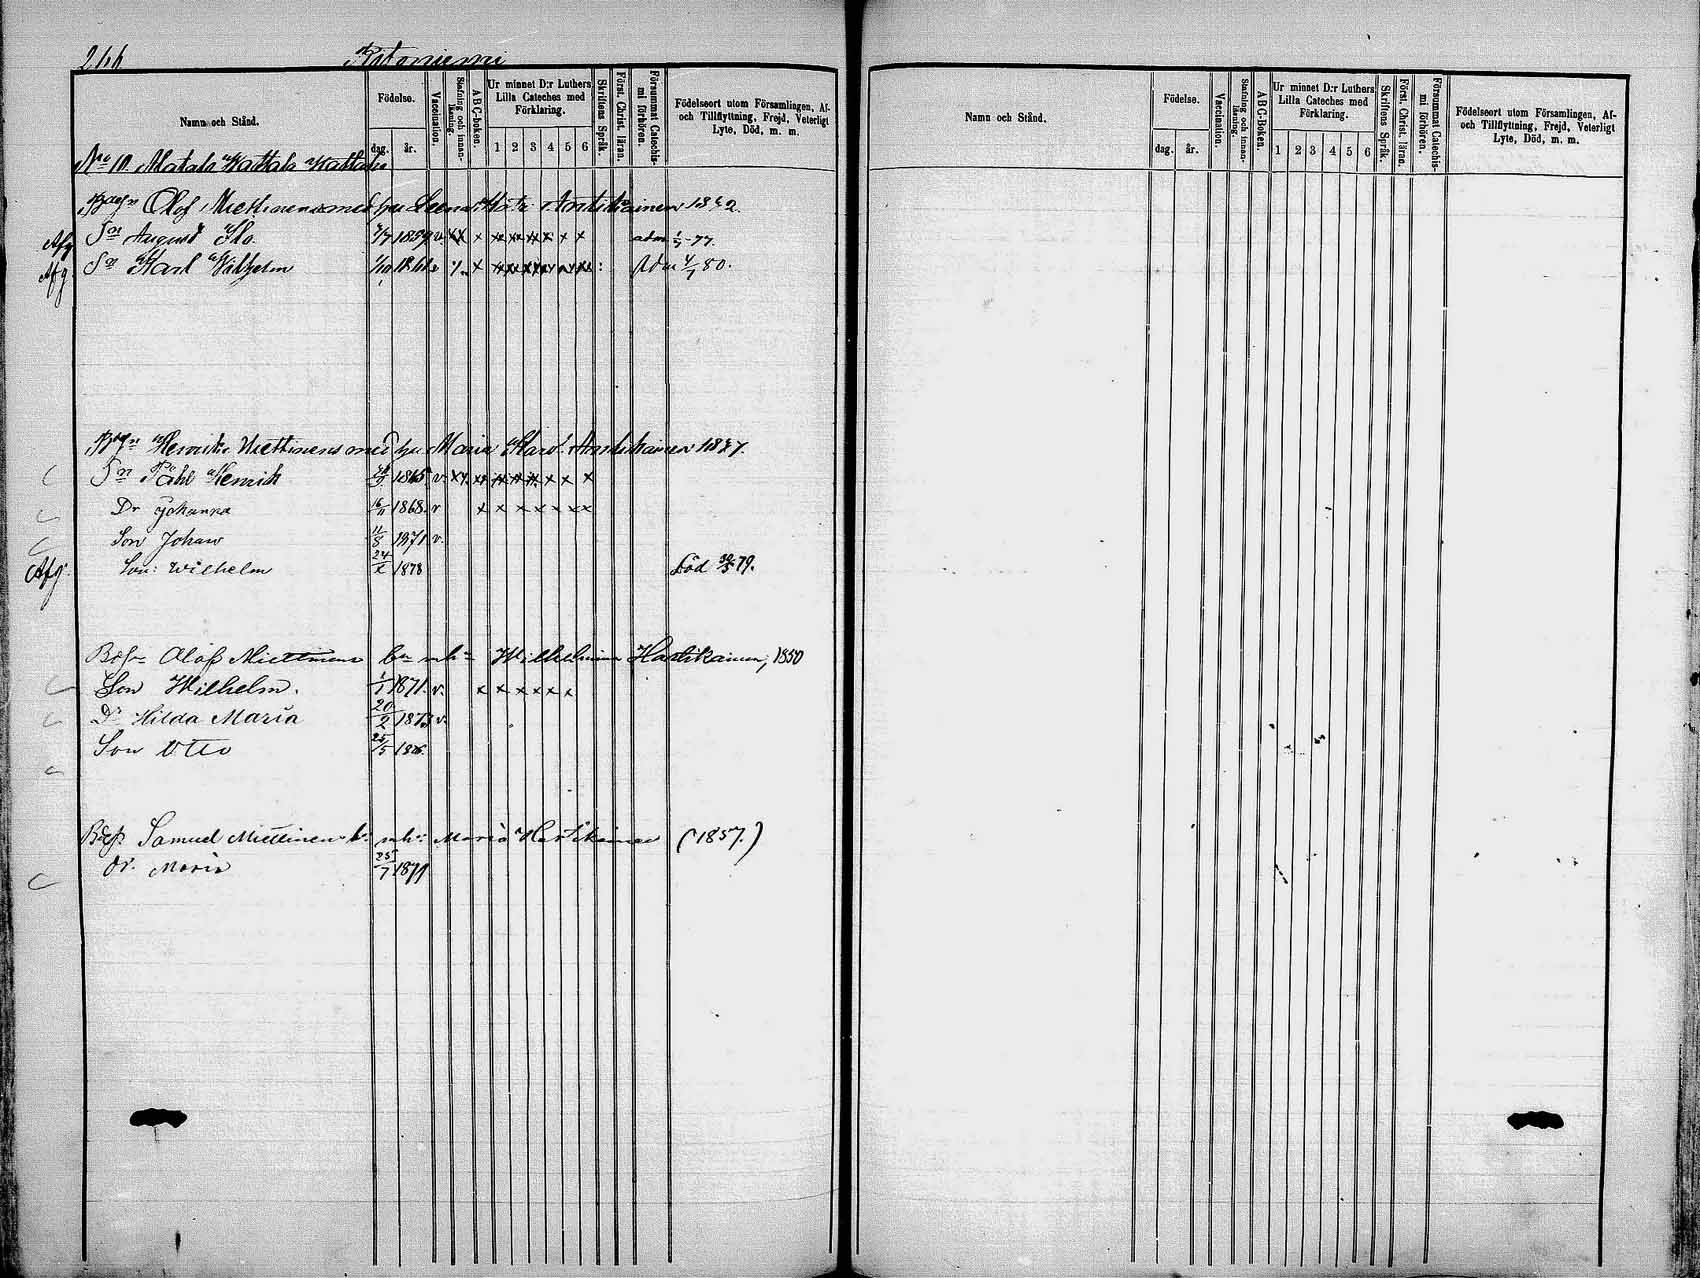 266 Ritoniemi
Namn och Stånd.
Födelse.
dag. år.
Vaccination.
Stafning och innanläsning.
A B C-boken.
Ur minnet D:r Luthers Lilla Cateches med Förklaring.
1 2 3 4 5 6
Skriftens Språk.
Först. Christ. läran.
Försummat Catechismi förhören.
Födelseort utom Församlingen, Af- och Tillflyttning, Frejd, Veterligt Lyte, Död, m. m.
N:o 10. Matala
Olof Miettinens med hu Leena Kat: Antikainen 1842.
Afg Sn August 1859 v. x x x x x x adm 77.
Afg Sn Karl Wilhelm 1861 Adm 4/7 80.
Henrik Miettinens med hu Maria Karol. Antikainen 1847.
Sn Påhl Henrik 1865 v.
Dr Johanna 16/11 1868. v x x x x x x x
Son Johan 11/8 1871 v.
Afg. Son: Wilhelm 24 1878 Död 79.
Olof Miettinens Wilhelmina Hartikainen, 1850
Son Wilhelm. 1/1 1871. v. x x x x x x
Dr Hilda Maria 20/2 1873 v.
Son Otto 25/5 1876.
Samuel Miettinen Maria Hartikainen (1857.)
dr. Maria 25/7 1879
Namn och Stånd.
Födelse.
dag. år.
Vaccination.
Stafning och innanläsning.
A B C-Boken.
Ur minnet D:r Luthers Lilla Cateches med Förklaring.
1 2 3 4 5 6
Skriftens Språk.
Först. Christ. läran.
Försummat Catechismi förhören.
Födelseort utom Församlingen, Af- och Tillflyttning, Frejd, Veterligt Lyte, Död, m. m.